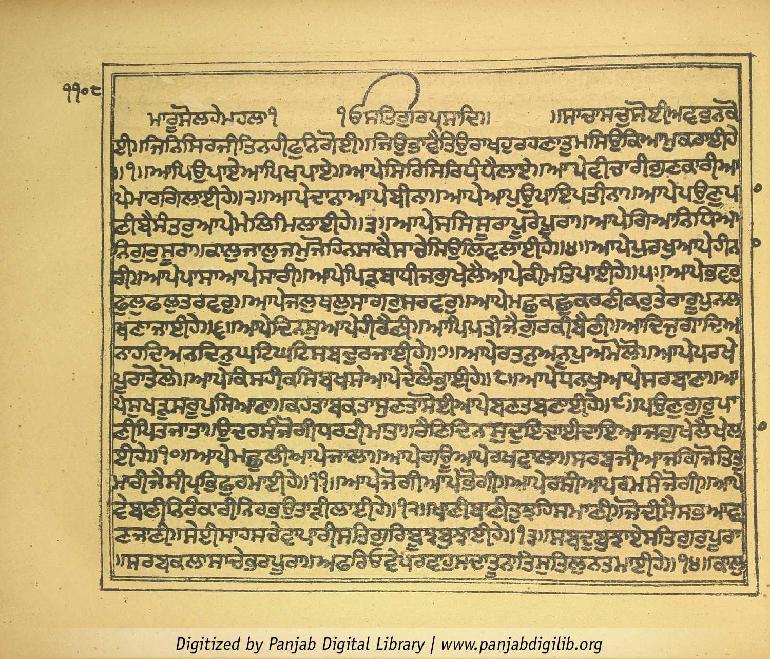 ੧੧੦੮
ਮਾਰੂਸੋਲਹੇਮਹਲਾ੧ ੴਸਤਿਗੁਰਪ੍ਰਸਾਦਿ॥ ॥ਸਾਚਾਸਚੁਸੋਈਅਵਰੁਨਕੋ
ਈ॥ਜਿਨਿਸਿਰਜੀਤਿਨਹੀਫੁਨਿਗੋਈ॥ਜਿਉਭਾਵੈਤਿਉਰਾਖਹੁਰਹਣਾਤੁਮਸਿਉਕਿਆਮੁਕਰਾਈਹੇ
॥੧॥ਆਪਿਉਪਾਏਆਪਿਖਪਾਏ॥ਆਪੇਸਿਰਿਸਿਰਿਧੰਧੈਲਾਏ॥ਆਪੇਵੀਚਾਰੀਗੁਣਕਾਰੀਆ
ਪੇਮਾਰਗਿਲਾਈਹੇ॥੨॥ਆਪੇਦਾਨਾਆਪੇਬੀਨਾ॥ਆਪੇਆਪੁਉਪਾਇਪਤੀਨਾ॥ਆਪੇਪਉਣੁਪ
ਾਣੀਬੈਸੰਤਰੁਆਪੇਮੇਲਿਮਿਲਾਈਹੇ॥੩॥ਆਪੇਸਸਿਸੂਰਾਪੂਰੋਪੂਰਾ॥ਆਪੇਗਿਆਨਿਧਿਆ
ਨਿਗੁਰੁਸੂਰਾ॥ਕਾਲੁਜਾਲੁਜਮੁਜੋਹਿਨਸਾਕੈਸਾਚੇਸਿਉਲਿਵਲਾਈਹੇ॥੪॥ਆਪੇਪੁਰਖੁਆਪੇਹੀਨ
ਾਰੀ॥ਆਪੇਪਾਸਾਆਪੇਸਾਰੀ॥ਆਪੇਪਿੜਬਾਧੀਜਗੁਖੇਲੈਆਪੇਕੀਮਤਿਪਾਈਹੇ॥੫॥ਆਪੇਭਵਰੁ
ਫੁਲੁਫਲੁਤਰਵਰੁ॥ਆਪੇਜਲੁਥਲੁਸਾਗਰੁਸਰਵਰੁ॥ਆਪੇਮਛੁਕਛੁਕਰਣੀਕਰੁਤੇਰਾਰੂਪੁਨਲਖ
ਣਾਜਾਈਹੇ॥੬॥ਆਪੇਦਿਨਸੁਆਪੇਹੀਰੈਣੀ॥ਆਪਿਪਤੀਜੈਗੁਰਕੀਬੈਣੀ॥ਆਦਿਜੁਗਾਦਿਅ
ਨਾਹਦਿਅਨਦਿਨੁਘਟਿਘਟਿਸਬਦੁਰਜਾਈਹੇ॥੭॥ਆਪੇਰਤਨੁਅਨੂਪੁਅਮੋਲੋ॥ਆਪੇਪਰਖੇ
ਪੂਰਾਤੋਲੋ॥ਆਪੇਕਿਸਹੀਕਸਿਬਖਸੇਆਪੇਦੇਲੈਭਾਈਹੇ॥੮॥ਆਪੇਧਨਖੁਆਪੇਸਰਬਾਣਾ॥ਆ
ਪੇਸੁਘੜੁਸਰੂਪੁਸਿਆਣਾ॥ਕਹਤਾਬਕਤਾਸੁਣਤਾਸੋਈਆਪੇਬਣਤਬਣਾਈਹੇ॥੯॥ਪਉਣੁਗੁਰੂਪਾ
ਣੀਪਿਤਜਾਤਾ॥ਉਦਰਸੰਜੋਗੀਧਰਤੀਮਾਤਾ॥ਰੈਣਿਦਿਨਸੁਦੁਇਦਾਈਦਾਇਆਜਗੁਖੇਲੈਖੇਲ
ਾਈਹੇ॥੧੦॥ਆਪੇਮਛੁਲੀਆਪੇਜਾਲਾ॥ਆਪੇਗਊਆਪੇਰਖਵਾਲਾ॥ਸਰਬਜੀਆਜਗਿਜੋਤਿਤੁ
ਮਾਰੀਜੈਸੀਪ੍ਰਭਿਫੁਰਮਾਈਹੇ॥੧੧॥ਆਪੇਜੋਗੀਆਪੇਭੋਗੀ॥ਆਪੇਰਸੀਆਪਰਮਸੰਜੋਗੀ॥ਆਪੇ
ਵੇਬਾਣੀਨਿਰੰਕਾਰੀਨਿਰਭਉਤਾੜੀਲਾਈਹੇ॥੧੨॥ਖਾਣੀਬਾਣੀਤੁਝਹਿਸਮਾਣੀ॥ਜੋਦੀਸੈਸਭਆਵ
ਣਜਾਣੀ॥ਸੇਈਸਾਹਸਚੇਵਾਪਾਰੀਸਤਿਗੁਰਿਬੂਝਬੁਝਾਈਹੇ॥੧੩॥ਸਬਦੁਬੁਝਾਏਸਤਿਗੁਰੁਪੂਰਾ
॥ਸਰਬਕਲਾਸਾਚੇਭਰਪੂਰਾ॥ਅਫਰਿਓਵੇਪਰਵਾਹੁਸਦਾਤੂਨਾਤਿਸੁਤਿਲੁਨਤਮਾਈਹੇ॥੧੪॥ਕਾਲੁ
Digitized by Panjab Digital Library | www.panjabdigilib.org